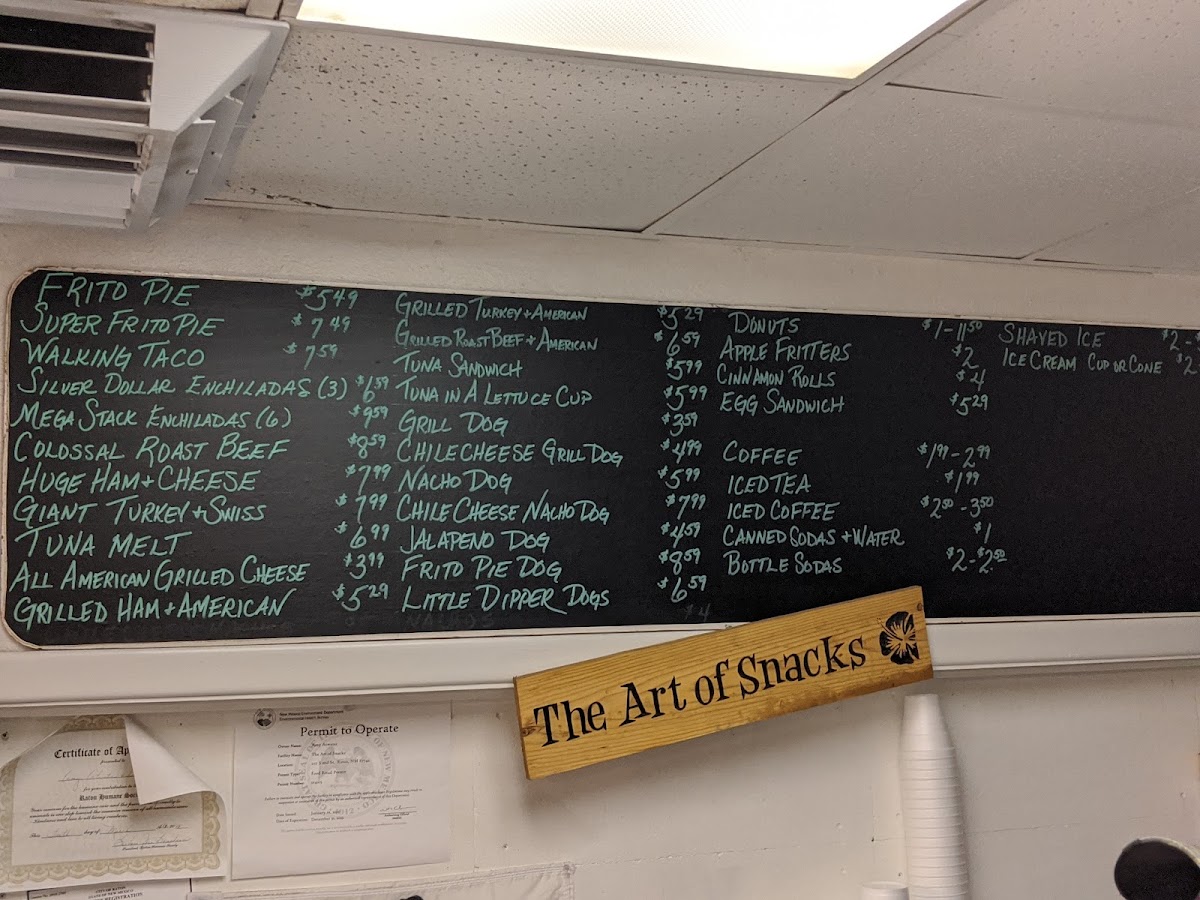 FRITO PIE $5 49
SUPER FRITO PIE $7 49
WALKING TACO $7 59
SILVER DOLLAR ENCHILADAS (3) $6 59
MEGA STACK ENCHILADAS (6) $9 59
COLOSSAL ROAST BEEF $8 59
HUGE HAM + CHEESE $7 99
GIANT TURKEY + SWISS $7 99
TUNA MELT $6 99
ALL AMERICAN GRILLED CHEESE $3 99
GRILLED HAM + AMERICAN $5 29
GRILLED TURKEY + AMERICAN $5 29
GRILLED ROAST BEEF + AMERICAN $6 59
TUNA SANDWICH $5 99
TUNA IN A LETTUCE CUP $5 99
GRILL DOG $3 59
CHILE CHEESE GRILL DOG $4 99
NACHO DOG $5 99
CHILE CHEESE NACHO DOG $7 99
JALAPENO DOG $4 59
FRITO PIE DOG $8 59
LITTLE DIPPER DOGS $6 59
NACHOS $4
DONUTS $1 - 11 50
APPLE FRITTERS $2
CINNAMON ROLLS $4
EGG SANDWICH $5 29
COFFEE $1 99 - 2 99
ICED TEA $1 99
ICED COFFEE $2 50 - 3 50
CANNED SODAS + WATER $1
BOTTLE SODAS $2 - $2 50
SHAVED ICE $2 -
ICE CREAM CUP OR CONE $2
The Art of Snacks
Certificate of Ap
Raton Humane Soc
New Mexico Environment Department
Permit to Operate
CITY OF RATON
STATE OF NEW MEXICO
REGISTRATION